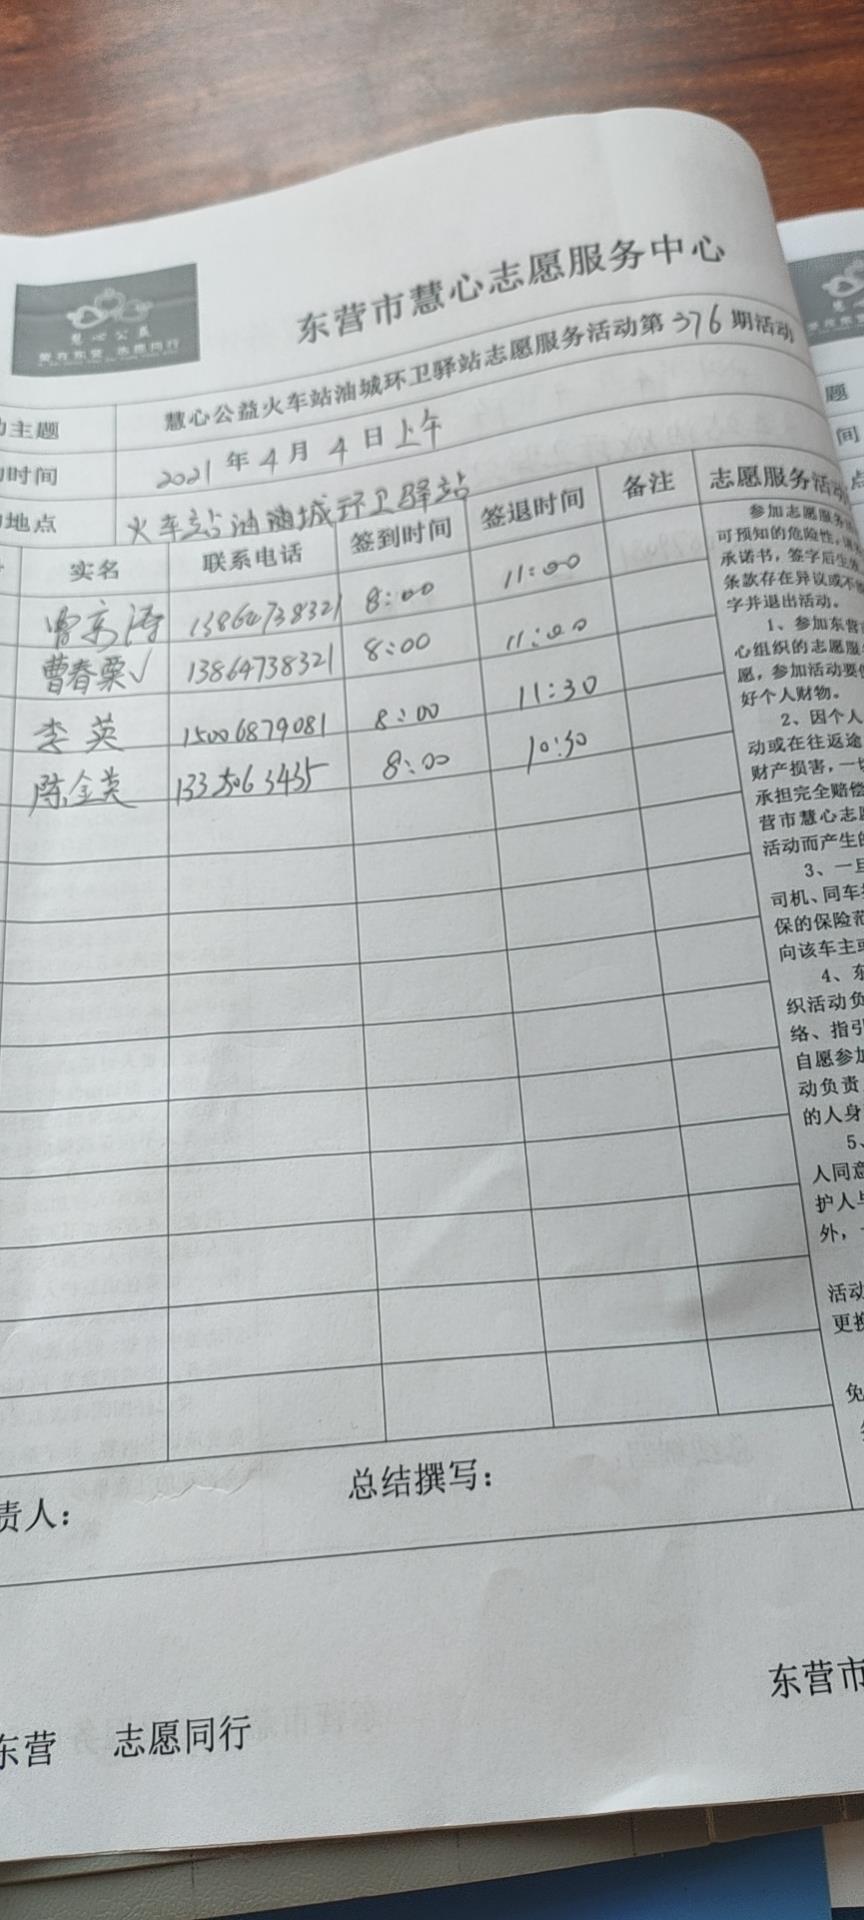 慧心公益
东营市慧心志愿服务中心
主题 慧心公益火车站油城环卫驿站志愿服务活动第376期活动
时间 2021年4月4日上午
地点 火车站油城环卫驿站
实名 联系电话 签到时间 签退时间 备注 志愿服务活动
13864738321 8:00 11:00
曹春栗√ 13864738321 8:00 11:00
李英 15006879081 8:00 11:30
陈金英 13350634 8:00 10:30
参加志愿服务
可预知的危险性,
承诺书,签字后生
条款存在异议或不
字并退出活动。
1、参加东营
心组织的志愿服
愿,参加活动要
好个人财物。
2、因个人
动或在往返途
财产损害,一
承担完全赔偿
营市慧心志愿
活动而产生的
3、一旦
司机、同车
保的保险范
向该车主或
4、东
织活动负
络、指引
自愿参加
动负责
的人身
5、
人同意
护人与
外,
活动
更换
免
责人: 总结撰写:
东营 志愿同行
东营市
题
间
点